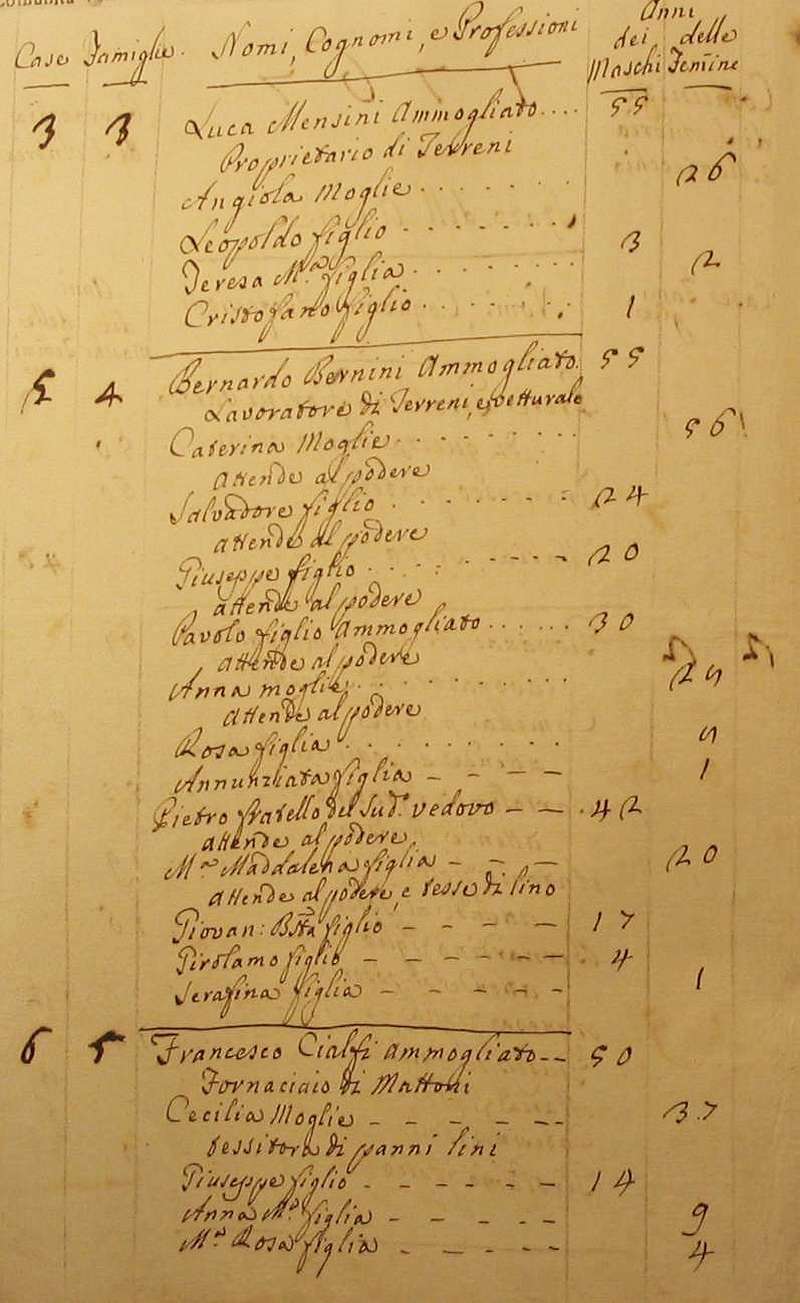 Case Famiglie. Nomi, Cognomi, e Professioni Anni dei Maschi delle Femine
3 3 Luca Mensini Ammogliato.... 55
Proprietario di Terreni
Angiola Moglie 26
Leopoldo figlio 3
Teresa M.a figlia 2
Cristofano figlio 1
5 4 Bernardo Bernini Ammogliato. 55
Lavoratore di Terreni, e vetturale
Caterina Moglie 56
Attende al podere
Salvadore figlio 24
attende al podere
Giuseppe figlio 20
attende al podere
Pavolo figlio Ammogliato 30
attende al podere
Anna moglie 25
attende al podere
Rosa figlia 5
Annunziata figlia 1
Pietro fratello del Sud.o vedovo 42
attende al podere
M.a Maddalena figlia 20
attende al podere, e tesse di lino
Giovan: Bta figlio 17
Girolamo figlio 4
Serafina figlia 1
6 5 Francesco Cialfi ammogliato 50
Fornaciaio di Mattoni
Cecilia Moglie 37
tessitora di panni lini
Giuseppe figlio 14
Anna M.a figlia 9
M.a Rosa figlia 4